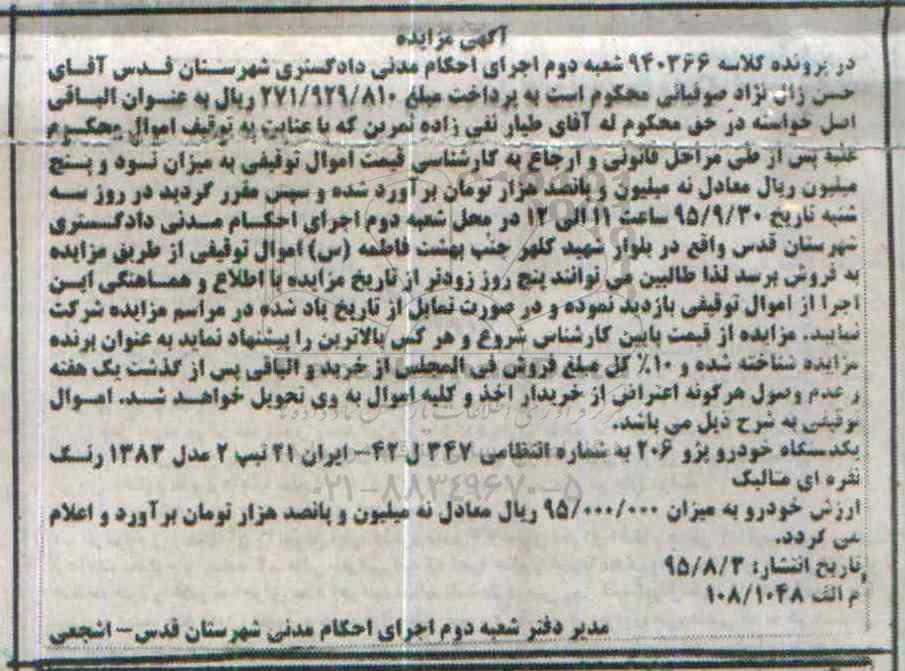 آگهی مزایده
در پرونده کلاسه ۹۴۰۳۶۶ شعبه دوم اجرای احکام مدنی دادگستری شهرستان قدس آقای
حسن زال نژاد صوفیانی محکوم است به پرداخت مبلغ ۲۷۱/۹۲۹/۸۱۰ ریال به عنوان الباقی
اصل خواسته در حق محکوم له آقای طیار نقی زاده ثمرین که با عنایت به توقیف اموال محکوم
علیه پس از طی مراحل قانونی و ارجاع به کارشناسی قیمت اموال توقیفی به میزان نود و پنج
میلیون ریال معادل نه میلیون و پانصد هزار تومان برآورد شده و سپس مقرر گردید در روز سه
شنبه تاریخ ۹۵/۹/۳۰ ساعت ۱۱ الی ۱۲ در محل شعبه دوم اجرای احکام مدنی دادگستری
شهرستان قدس واقع در بلوار شهید کلهر جنب بهشت فاطمه (س) اموال توقیفی از طریق مزایده
به فروش برسد لذا طالبین می توانند پنج روز زودتر از تاریخ مزایده با اطلاع و هماهنگی این
اجرا از اموال توقیفی بازدید نموده و در صورت تمایل از تاریخ یاد شده در مراسم مزایده شرکت
نمایند. مزایده از قیمت پایین کارشناس شروع و هر کس بالاترین را پیشنهاد نماید به عنوان برنده
مزایده شناخته شده و ۱۰٪ کل مبلغ فروش فی المجلس از خرید و الباقی پس از گذشت یک هفته
و عدم وصول هرگونه اعتراض از خریدار اخذ و کلیه اموال به وی تحویل خواهد شد. اموال
توقیفی به شرح ذیل می باشد.
یکدستگاه خودرو پژو ۲۰۶ به شماره انتظامی ۳۴۷ ل ۴۲- ایران ۲۱ تیپ ۲ مدل ۱۳۸۳ رنگ
نقره ای متالیک
۰۲۱-۸۸۳۴۹۶۷۰-۵
ارزش خودرو به میزان ۹۵/۰۰۰/۰۰۰ ریال معادل نه میلیون و پانصد هزار تومان برآورد و اعلام
می گردد.
تاریخ انتشار: ۹۵/۸/۳
م الف ۱۰۸/۱۰۴۸
مدیر دفتر شعبه دوم اجرای احکام مدنی شهرستان قدس- اشجعی